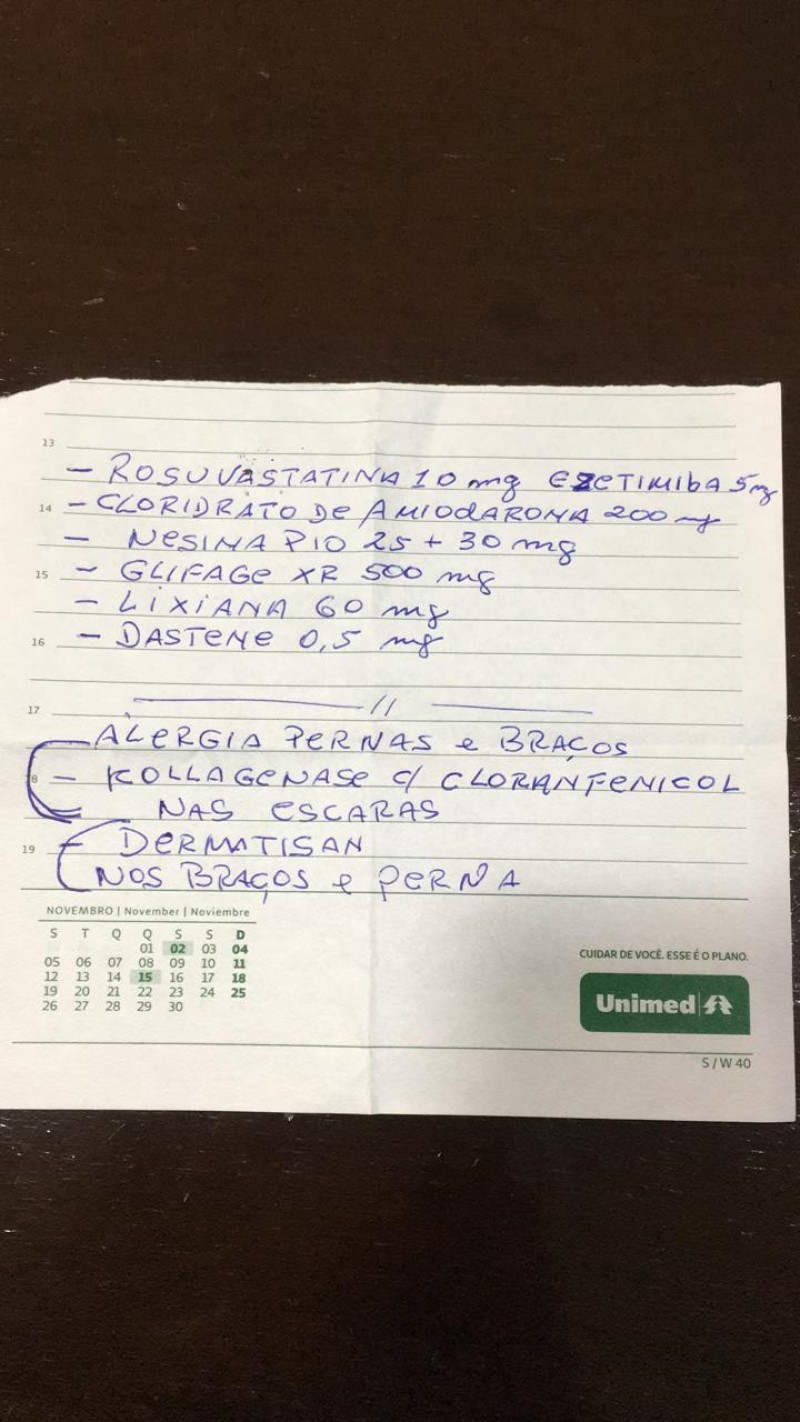 13
- ROSUVASTATINA 10 mg EZETIMIBA 5mg
14 - CLORIDRATO DE AMIODARONA 200 mg
- NESINA PIO 25 + 30 mg
15 - GLIFAGE XR 500 mg
- LIXIANA 60 mg
16 - DASTENE 0,5 mg
17 //
- ALERGIA PERNAS e BRAÇOS
8 - KOLLAGENASE c/ CLORANFENICOL
NAS ESCARAS
19 - DERMATISAN
NOS BRAÇOS e PERNA
NOVEMBRO | November | Noviembre
S T Q Q S S D
01 02 03 04
05 06 07 08 09 10 11
12 13 14 15 16 17 18
19 20 21 22 23 24 25
26 27 28 29 30
CUIDAR DE VOCÊ. ESSE É O PLANO.
Unimed
S / W 40